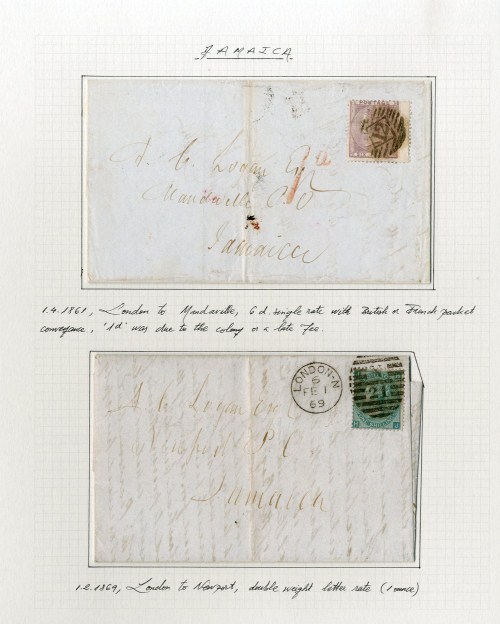 JAMAICA
1d
A. C. Logan Esq
Mandeville P.O
Jamaica
1.4.1861, London to Mandaville, 6d. single rate with British or French packet
conveyance, '1d' was due to the colony or a late fee.
LONDON-N
6
FE 1
69
21
A. C. Logan
Newport P. O
Jamaica
1.2.1869, London to Newport, double weight letter rate (1 ounce)